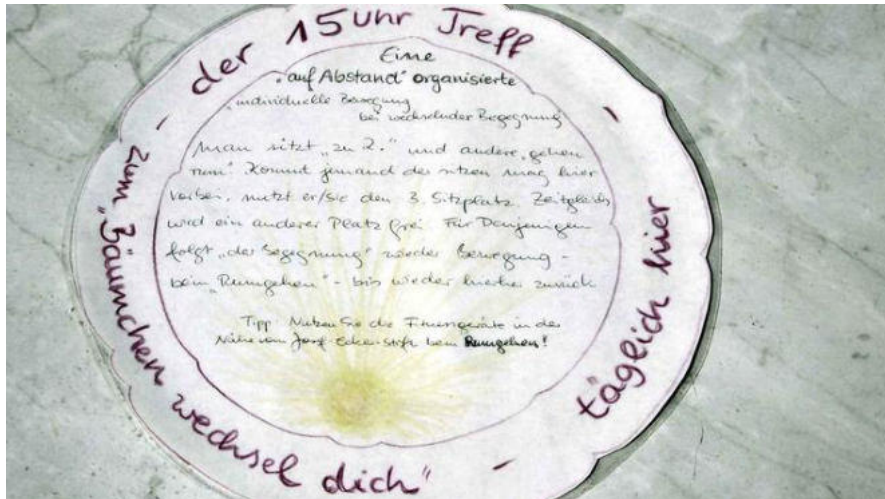 - der 15 Uhr Treff -
täglich hier -
zum "Bäumchen wechsel dich"
Eine
"auf Abstand" organisierte
"individuelle Bewegung
bei wechselnder Begegnung
Man sitzt "zu 2." und andere "gehen
rum". Kommt jemand der sitzen mag hier
vorbei, nutzt er/sie den 3. Sitzplatz. Zeitgleich
wird ein anderer Platz frei. Für Denjenigen
folgt "der Begegnung" wieder Bewegung -
beim "Rumgehen" - bis wieder hierher zurück
Tipp: Nutzen Sie die Fitnessgeräte in der
Nähe vom Josef-Ecker-Stift beim Rumgehen!